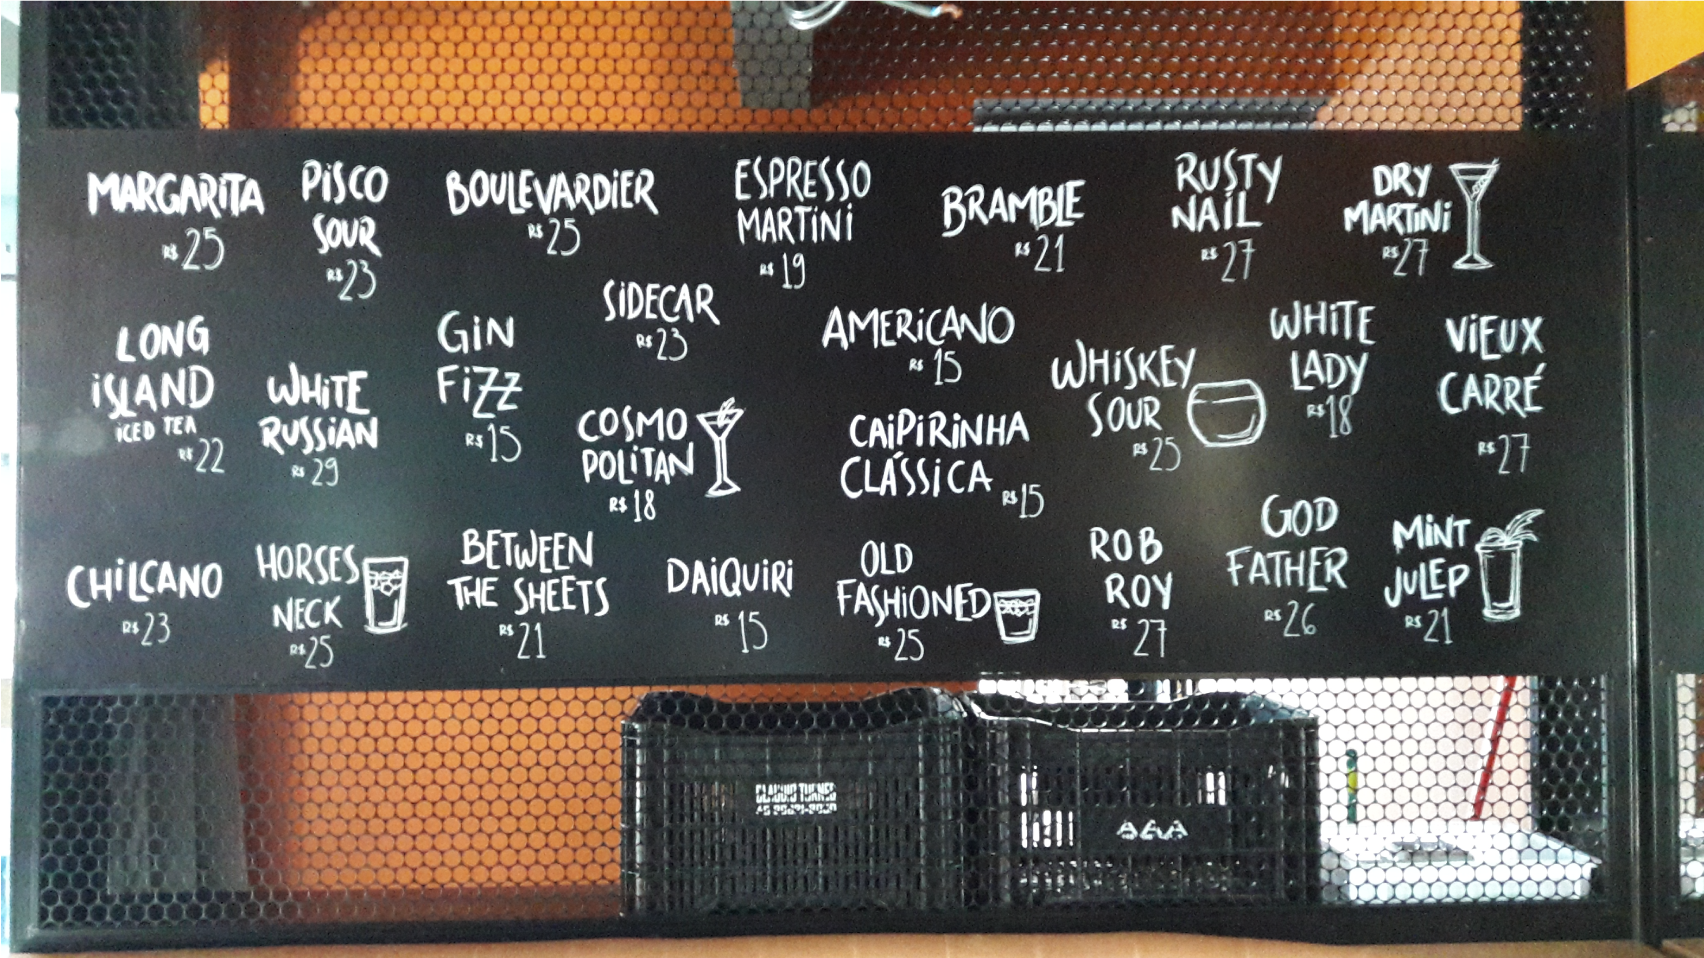 MARGARITA
R$ 25
PISCO
SOUR
R$ 23
BOULEVARDIER
R$ 25
ESPRESSO
MARTINI
R$ 19
BRAMBLE
R$ 21
RUSTY
NAIL
R$ 27
DRY
MARTINI
R$ 27
LONG
ISLAND
ICED TEA
R$ 22
WHITE
RUSSIAN
R$ 29
GIN
FIZZ
R$ 15
SIDECAR
R$ 23
COSMO
POLITAN
R$ 18
AMERICANO
R$ 15
CAIPIRINHA
CLÁSSICA
R$ 15
WHISKEY
SOUR
R$ 25
WHITE
LADY
R$ 18
VIEUX
CARRÉ
R$ 27
CHILCANO
R$ 23
HORSES
NECK
R$ 25
BETWEEN
THE SHEETS
R$ 21
DAIQUIRI
R$ 15
OLD
FASHIONED
R$ 25
ROB
ROY
R$ 27
GOD
FATHER
R$ 26
MINT
JULEP
R$ 21